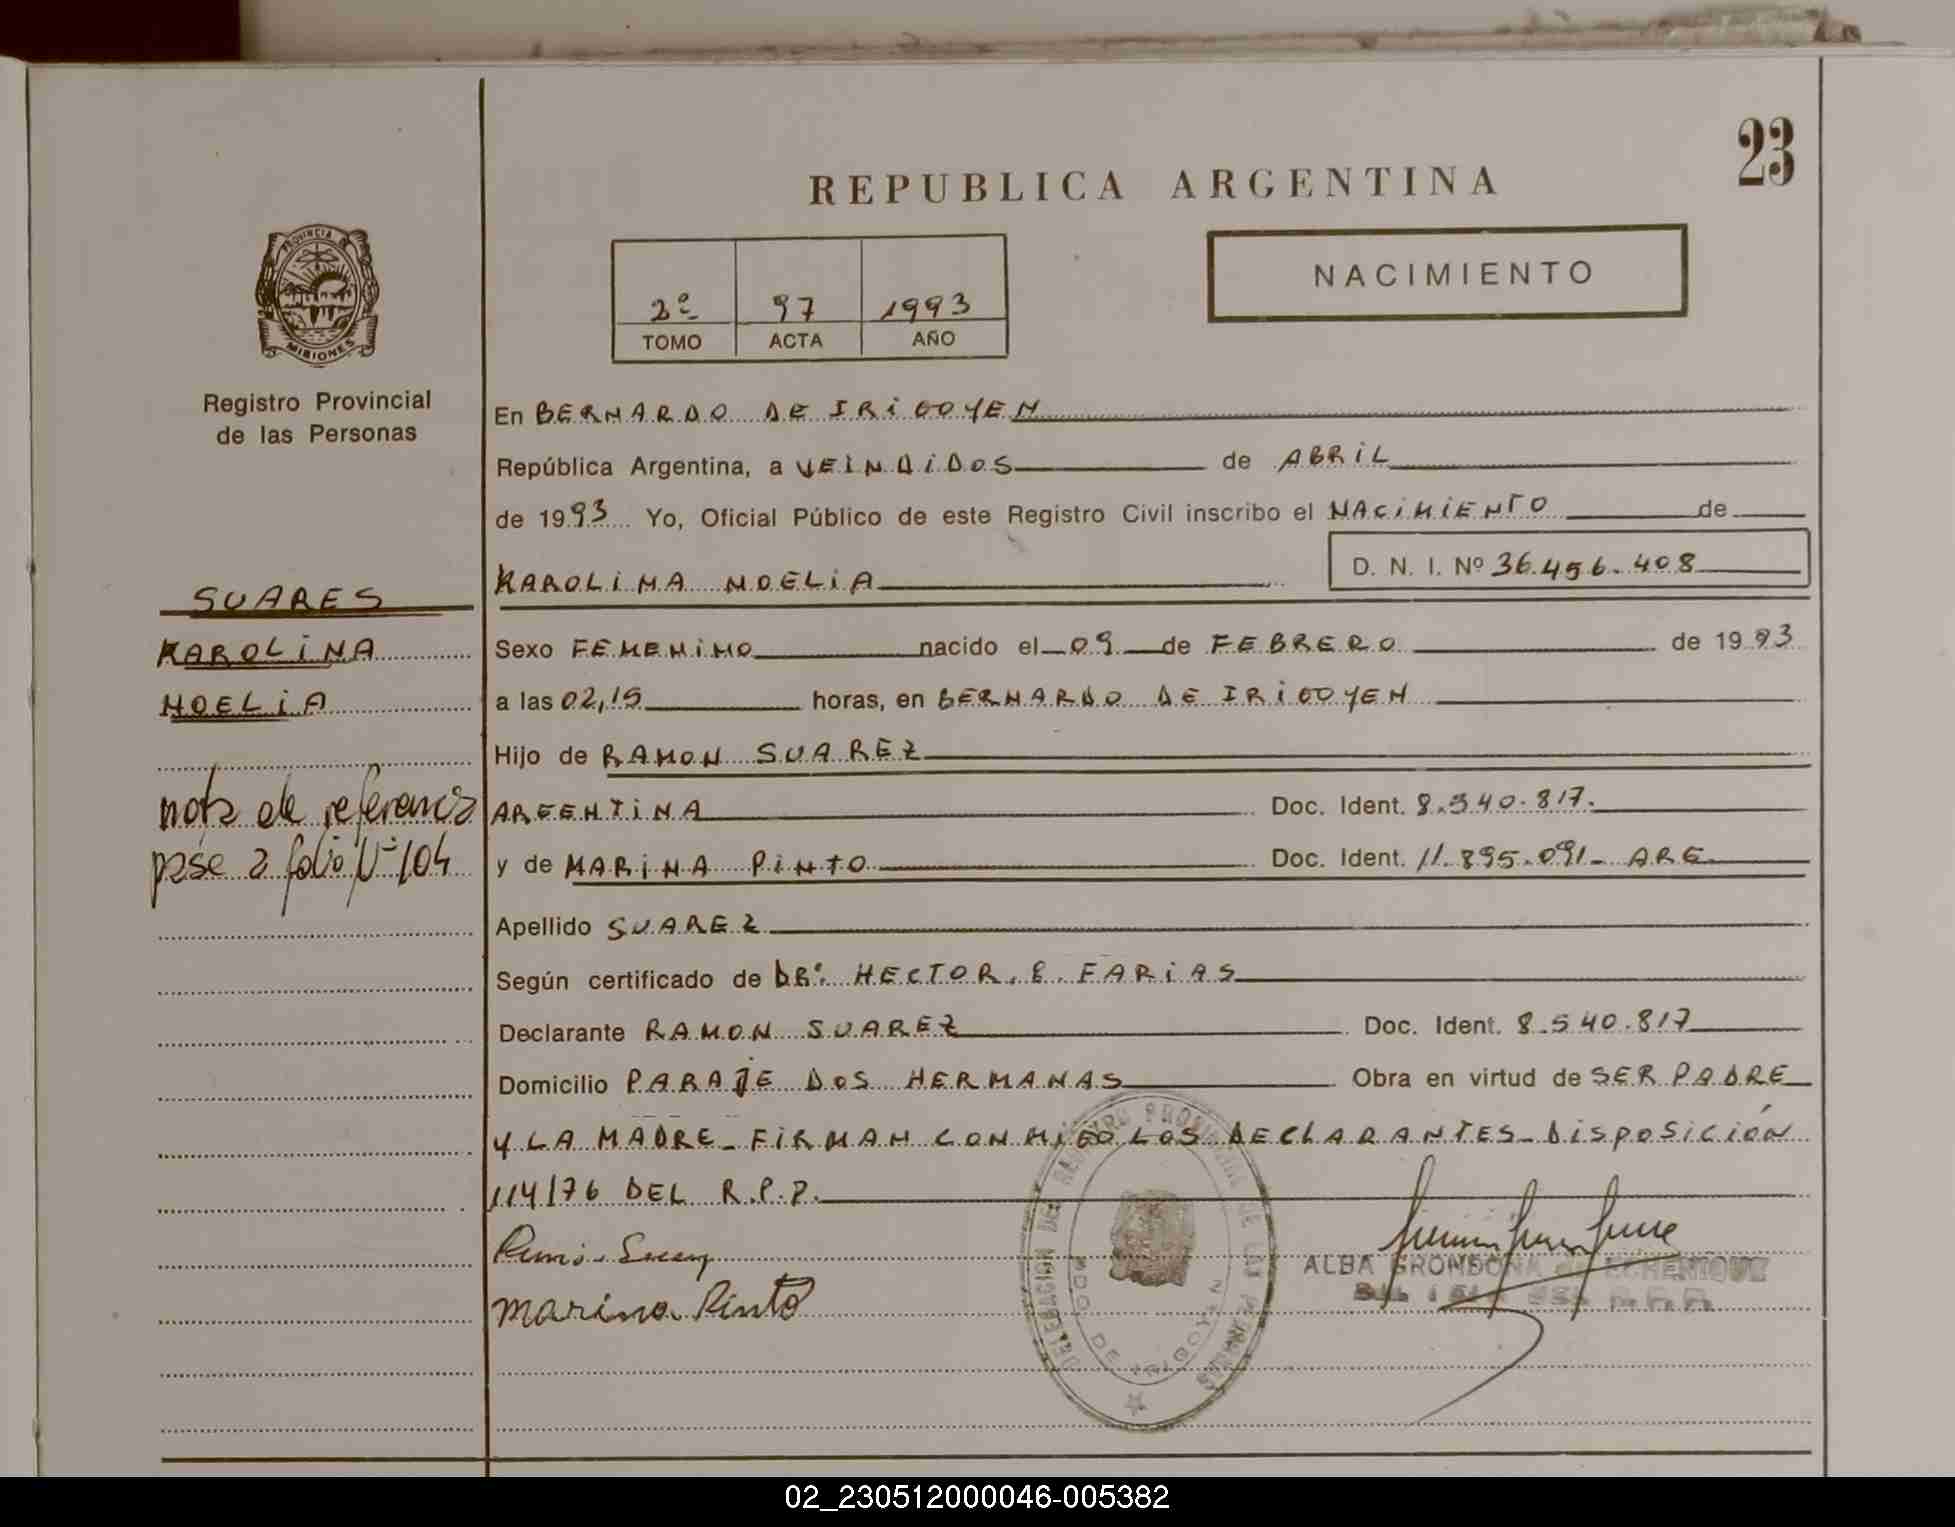 23
REPUBLICA ARGENTINA
NACIMIENTO
PROVINCIA DE
MISIONES
Registro Provincial
de las Personas
2º 97 1993
TOMO ACTA AÑO
En BERNARDO DE IRIGOYEN
República Argentina, a VEINDIDOS de ABRIL
de 1993 Yo, Oficial Público de este Registro Civil inscribo el NACIMIENTO de
D. N. I. Nº 36.456.408
KAROLINA NOELIA
SUARES
KAROLINA
NOELIA
nota de referencia
pase a folio Nº 104
Sexo FEMENINO nacido el 09 de FEBRERO de 1993
a las 02,15 horas, en BERNARDO DE IRIGOYEN
Hijo de RAMON SUAREZ
ARGENTINA Doc. Ident. 8.540.817.
y de MARINA PINTO Doc. Ident. 11.895.091- ARG
Apellido SUAREZ
Según certificado de DR. HECTOR. E. FARIAS
Declarante RAMON SUAREZ Doc. Ident. 8.540.817
Domicilio PARAJE DOS HERMANAS Obra en virtud de SER PADRE
Y LA MADRE_ FIRMAN CONMIGO LOS DECLARANTES_ DISPOSICIÓN
114/76 DEL R.P.P.
Marina Pinto
DELEGACION DEL REGISTRO PROVINCIAL DE LAS PERSONAS
BDO. DE IRIGOYEN
ALBA GRONDONA de ECHENIQUE
02_230512000046-005382